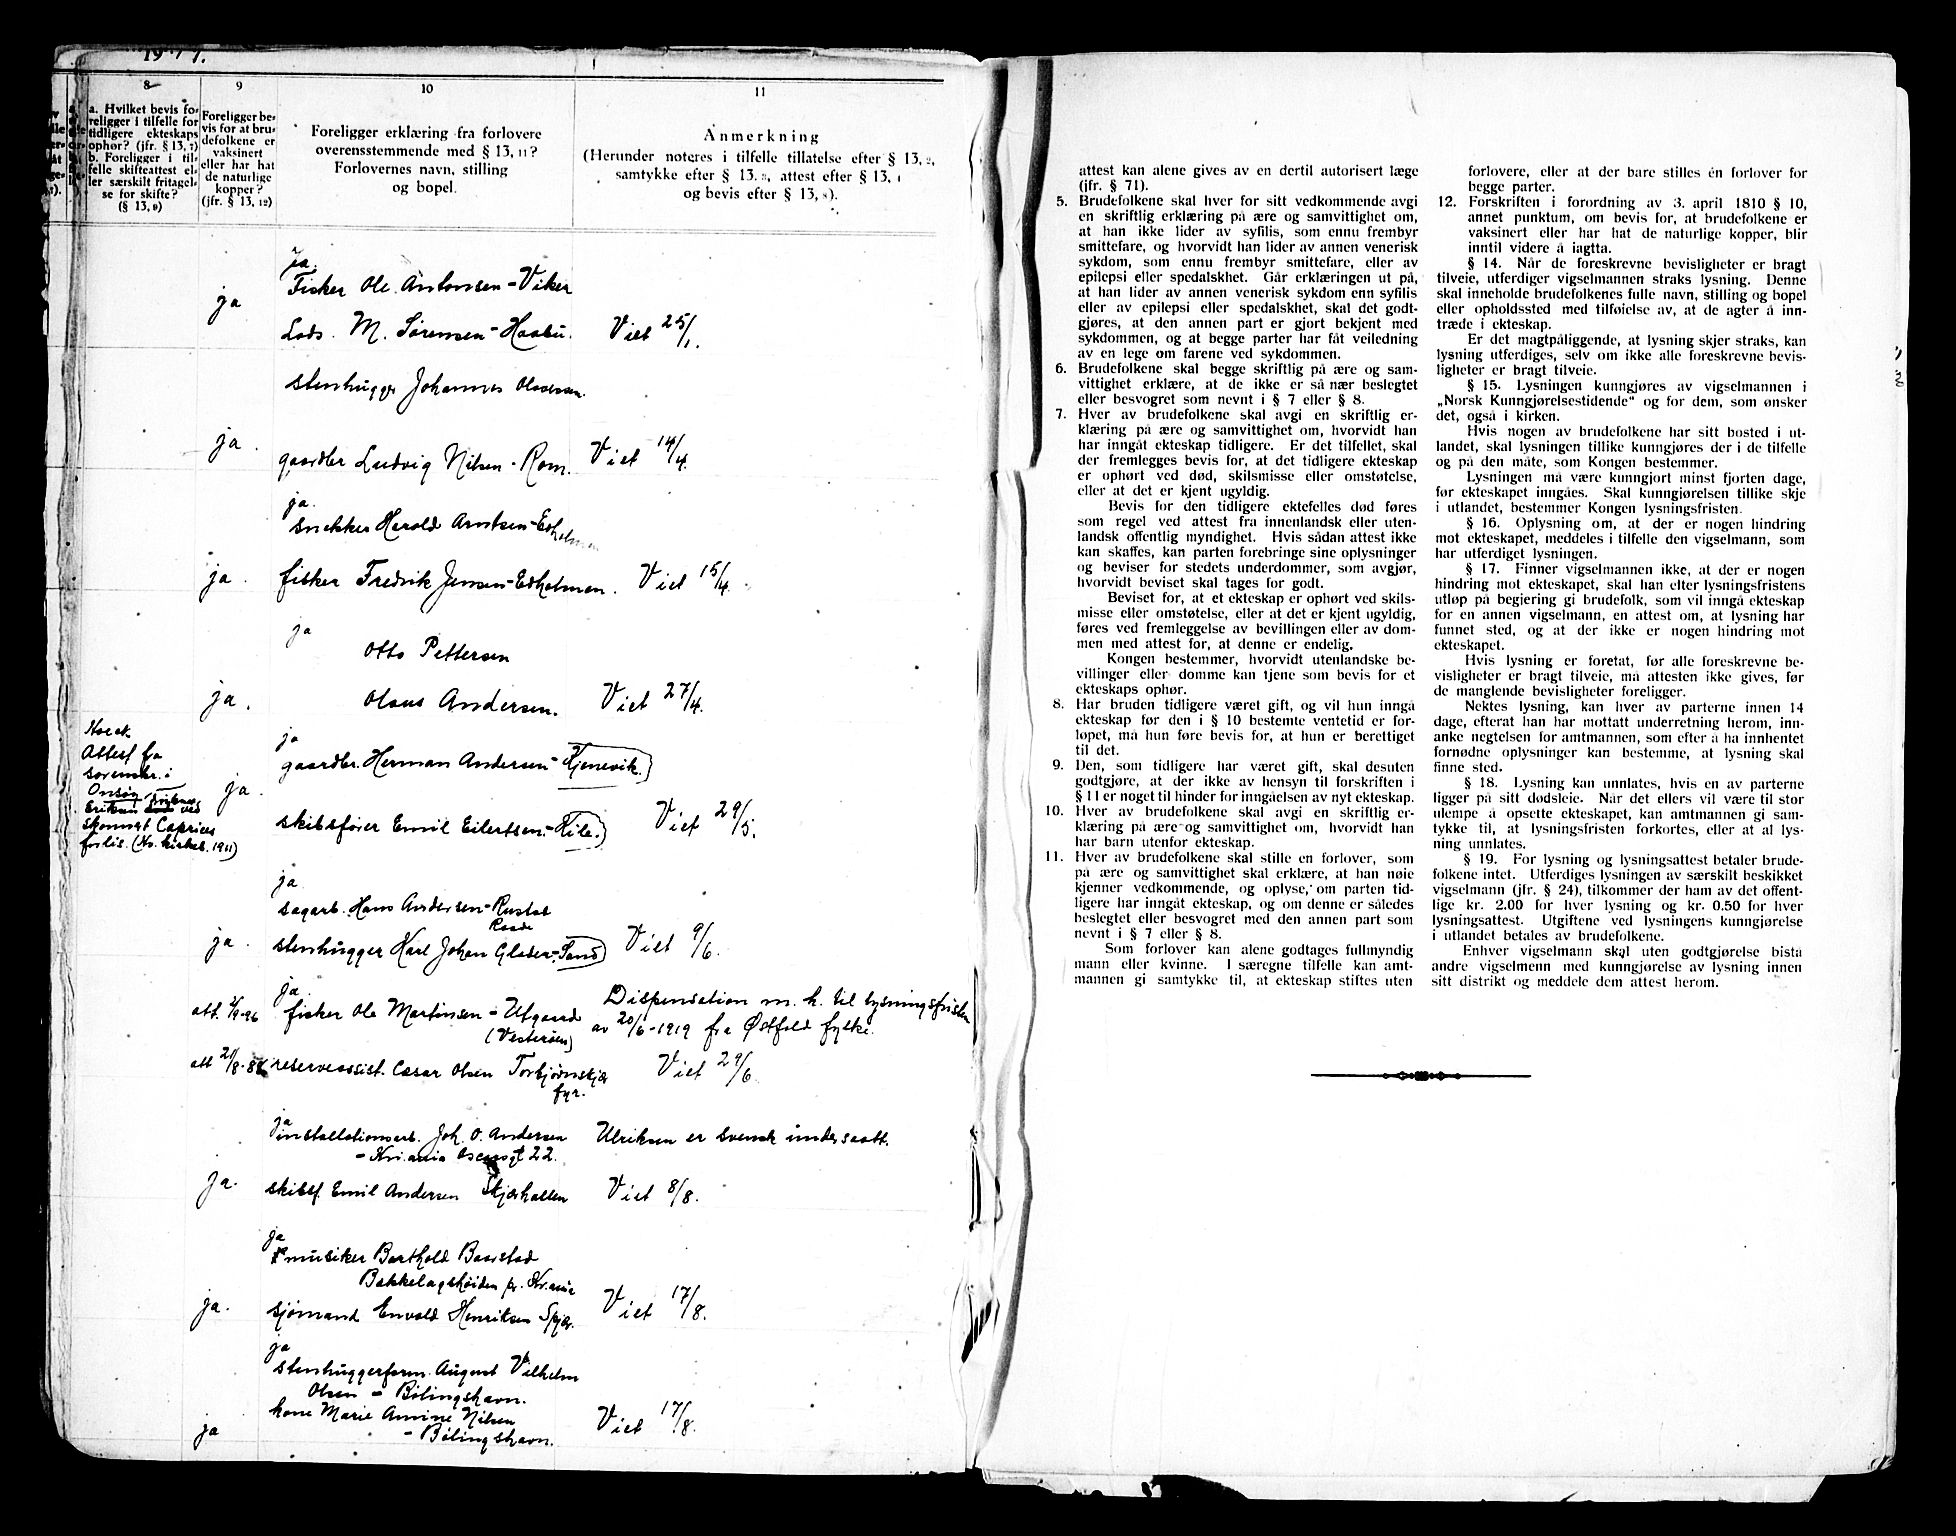 8
a. Hvilket bevis fo-
religger i tilfelle for
tidligere ekteskaps
ophør? (jfr. § 13, 7)
b. Foreligger i til-
felle skifteattest el-
ler særskilt fritagel-
se for skifte?
(§ 13, 9)
9
Foreligger be-
vis for at bru-
defolkene er
vaksinert
eller har hat
de naturlige
kopper?
(jfr. § 13, 12)
10
Foreligger erklæring fra forlovere
overensstemmende med § 13, 11?
Forlovernes navn, stilling
og bopel.
11
Anmerkning
(Herunder noteres i tilfelle tillatelse efter § 13, 2,
samtykke efter § 13, 3, attest efter § 13, 4
og bevis efter § 13, 8).
ja
Fisker Ole Antonsen - Viker
ja
Lods. M. Sørensen - Haabu. Viet 25/1.
stenhugger Johannes Olavesen.
ja.
gaardbr Ludvig Nilsen - Rom. Viet 14/4.
ja.
snekker Harald Arntsen - Edholmen
ja. fisker Fredrik Jensen - Edholmen. Viet 15/4.
ja
Otto Pettersen
ja. Olaus Andersen. Viet 27/4.
Attest fra
sorenskr. i
Onsøy
Eriksen ved
Caprices
forlis. (No. kirkeb. 1911)
ja
gaardbr. Herman Andersen - Kjenevik.
ja.
skibsfører Emil Eilertsen - Kile. Viet 29/5.
ja
sagarb. Hans Andersen - Rustad
Raade
ja. stenhugger Karl Johan Glader - Sand Viet 9/6.
ja
att. 2/9-96 fisker Ole Martinsen - Utgaard
(Vesterøen)
Dispensation m. h. til lysningsfristen
av 20/6-1919 fra Østfold fylke.
att 21/8-88 reserveassist. Cæsar Olsen Torbjørnskjær
fyr.
Viet 29/6.
ja
installationsarb. Joh. O. Andersen
- Kr.ania Oscarsgt 22.
Ulriksen er svensk undersaatt.
ja. skibsf Emil Andersen Skjærhallen Viet 8/8.
ja
musiker Barthold Baarstad
Bekkelagshøiden pr. Kr.ania
ja. sjømand Envald Henriksen Spjær. Viet 17/8.
ja
stenhuggerform. August Vilhelm
Olsen - Bølingshavn.
kone Marie Amine Nilsen
ja - Bølingshavn. Viet 17/8.
attest kan alene gives av en dertil autorisert læge
(jfr. § 71).
5. Brudefolkene skal hver for sitt vedkommende avgi
en skriftlig erklæring på ære og samvittighet om,
at han ikke lider av syfilis, som ennu frembyr
smittefare, og hvorvidt han lider av annen venerisk
sykdom, som ennu frembyr smittefare, eller av
epilepsi eller spedalskhet. Går erklæringen ut på,
at han lider av annen venerisk sykdom enn syfilis
eller av epilepsi eller spedalskhet, skal det godt-
gjøres, at den annen part er gjort bekjent med
sykdommen, og at begge parter har fåt veiledning
av en lege om farene ved sykdommen.
6. Brudefolkene skal begge skriftlig på ære og sam-
vittighet erklære, at de ikke er så nær beslegtet
eller besvogret som nevnt i § 7 eller § 8.
7. Hver av brudefolkene skal avgi en skriftlig er-
klæring på ære og samvittighet om, hvorvidt han
har inngåt ekteskap tidligere. Er det tilfellet, skal
der fremlegges bevis for, at det tidligere ekteskap
er ophørt ved død, skilsmisse eller omstøtelse,
eller at det er kjent ugyldig.
Bevis for den tidligere ektefelles død føres
som regel ved attest fra innenlandsk eller uten-
landsk offentlig myndighet. Hvis sådan attest ikke
kan skaffes, kan parten forebringe sine oplysninger
og beviser for stedets underdommer, som avgjør,
hvorvidt beviset skal tages for godt.
Beviset for, at et ekteskap er ophørt ved skils-
misse eller omstøtelse, eller at det er kjent ugyldig,
føres ved fremleggelse av bevillingen eller av dom-
men med attest for, at denne er endelig.
Kongen bestemmer, hvorvidt utenlandske be-
villinger eller domme kan tjene som bevis for et
ekteskaps ophør.
8. Har bruden tidligere været gift, og vil hun inngå
ekteskap før den i § 10 bestemte ventetid er for-
løpet, må hun føre bevis for, at hun er berettiget
til det.
9. Den, som tidligere har været gift, skal desuten
godtgjøre, at der ikke av hensyn til forskriften i
§ 11 er noget til hinder for inngåelsen av nyt ekteskap.
10. Hver av brudefolkene skal avgi en skriftlig er-
klæring på ære og samvittighet om, hvorvidt han
har barn utenfor ekteskap.
11. Hver av brudefolkene skal stille en forlover, som
på ære og samvittighet skal erklære, at han nøie
kjenner vedkommende, og oplyse, om parten tid-
ligere har inngåt ekteskap, og om denne er således
beslegtet eller besvogret med den annen part som
nevnt i § 7 eller § 8.
Som forlover kan alene godtages fullmyndig
mann eller kvinne. I særegne tilfelle kan amt-
mannen gi samtykke til, at ekteskap stiftes uten
forlovere, eller at der bare stilles én forlover for
begge parter.
12. Forskriften i forordning av 3. april 1810 § 10,
annet punktum, om bevis for, at brudefolkene er
vaksinert eller har hat de naturlige kopper, blir
inntil videre å iagtta.
§ 14. Når de foreskrevne bevisligheter er bragt
tilveie, utferdiger vigselmannen straks lysning. Denne
skal inneholde brudefolkenes fulle navn, stilling og bopel
eller opholdssted med tilføielse av, at de agter å inn-
træde i ekteskap.
Er det magtpåliggende, at lysning skjer straks, kan
lysning utferdiges, selv om ikke alle foreskrevne bevis-
ligheter er bragt tilveie.
§ 15. Lysningen kunngjøres av vigselmannen i
„Norsk Kunngjørelsestidende“ og for dem, som ønsker
det, også i kirken.
Hvis nogen av brudefolkene har sitt bosted i ut-
landet, skal lysningen tillike kunngjøres der i de tilfelle
og på den måte, som Kongen bestemmer.
Lysningen må være kunngjort minst fjorten dage,
før ekteskapet inngåes. Skal kunngjørelsen tillike skje
i utlandet, bestemmer Kongen lysningsfristen.
§ 16. Oplysning om, at der er nogen hindring
mot ekteskapet, meddeles i tilfelle den vigselmann, som
har utferdiget lysningen.
§ 17. Finner vigselmannen ikke, at der er nogen
hindring mot ekteskapet, skal han efter lysningsfristens
utløp på begjering gi brudefolk, som vil inngå ekteskap
for en annen vigselmann, en attest om, at lysning har
funnet sted, og at der ikke er nogen hindring mot
ekteskapet.
Hvis lysning er foretat, før alle foreskrevne be-
visligheter er bragt tilveie, må attesten ikke gives, før
de manglende bevisligheter foreligger.
Nektes lysning, kan hver av parterne innen 14
dage, efterat han har mottatt underretning herom, inn-
anke negtelsen for amtmannen, som efter å ha innhentet
fornødne oplysninger kan bestemme, at lysning skal
finne sted.
§ 18. Lysning kan unnlates, hvis en av parterne
ligger på sitt dødsleie. Når det ellers vil være til stor
ulempe å opsette ekteskapet, kan amtmannen gi sam-
tykke til, at lysningsfristen forkortes, eller at al lys-
ning unnlates.
§ 19. For lysning og lysningsattest betaler brude-
folkene intet. Utferdiges lysningen av særskilt beskikket
vigselmann (jfr. § 24), tilkommer der ham av det offent-
lige kr. 2.00 for hver lysning og kr. 0.50 for hver
lysningsattest. Utgiftene ved lysningens kunngjørelse
i utlandet betales av brudefolkene.
Enhver vigselmann skal uten godtgjørelse bista
andre vigselmenn med kunngjørelse av lysning innen
sitt distrikt og meddele dem attest herom.